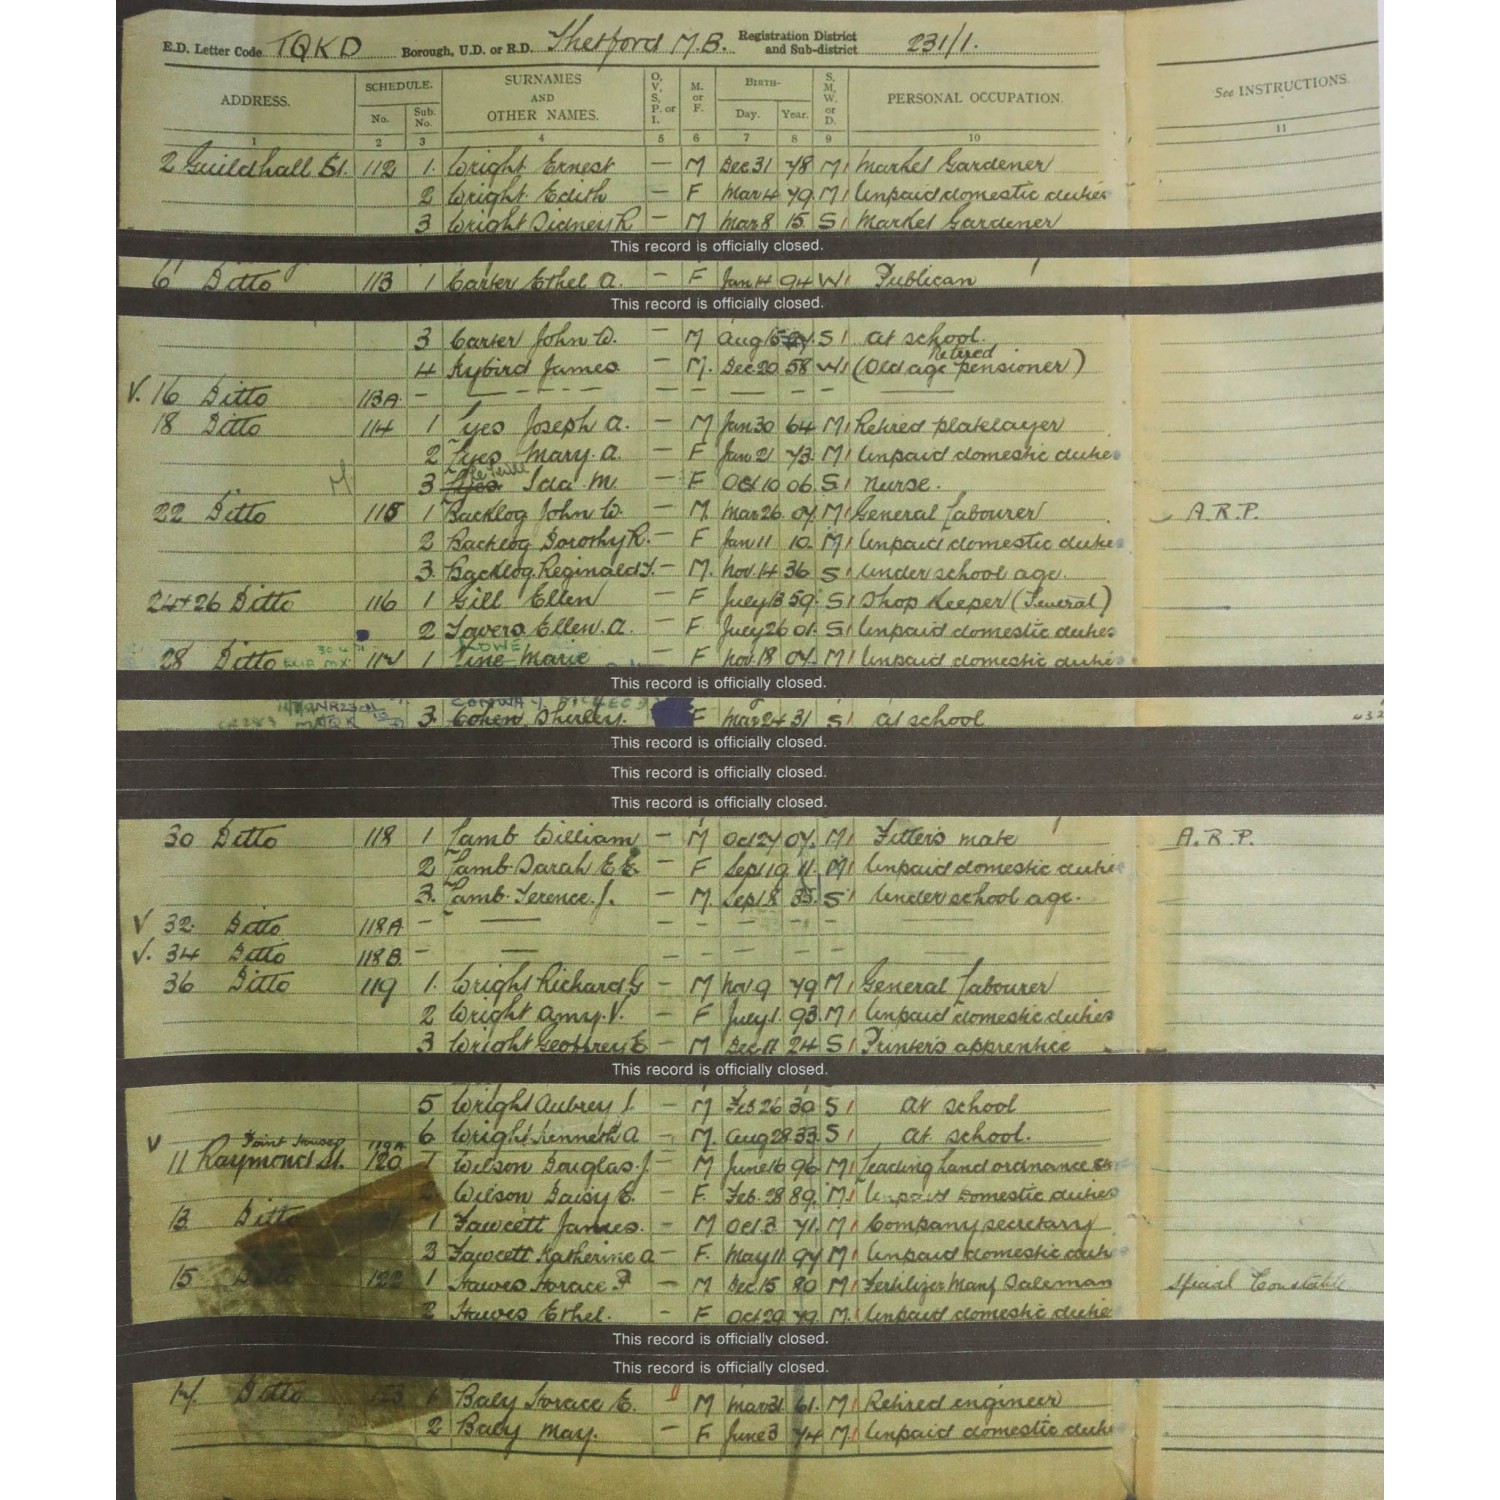 E.D. Letter Code TQKD Borough, U.D. or R.D. Thetford M.B. Registration District and Sub-district 231/1.
ADDRESS. SCHEDULE. No. Sub. No. SURNAMES AND OTHER NAMES. O. V. S. P. or I. M. or F. BIRTH- Day. Year. S. M. W. or D. PERSONAL OCCUPATION. See INSTRUCTIONS.
1 2 3 4 5 6 7 8 9 10 11
2 Guildhall St. 112 1 Wright Ernest — M Dec 31 78 M Market Gardener
2 Wright Edith — F Mar 4 79 M Unpaid domestic duties
3 Wright Sidney R — M Mar 8 15 S Market Gardener
This record is officially closed.
6 Ditto 113 1 Carter Ethel A. — F Jan 14 94 W Publican
This record is officially closed.
3 Carter John W. — M Aug 15 S At school.
4 Kybird James — M. Dec 20 58 W (Old age Retired pensioner)
V. 16 Ditto 113A - — — — —
18 Ditto 114 1 Tyes Joseph A. — M Jan 30 64 M Retired platelayer
2 Tyes Mary A. — F Jan 21 73 M Unpaid domestic duties
3 Tyes Ida M. — F Oct 10 06 S Nurse.
22 Ditto 115 1 Backlog John W. — M. Mar 26 07 M General Labourer A.R.P.
2 Backlog Dorothy R. — F Jan 11 10 M Unpaid domestic duties
3 Backlog Reginald — M. Nov 14 36 S Under school age.
24+26 Ditto 116 1 Gill Ellen — F July 13 59 S Shop Keeper (General)
2 Ellen A. — F July 26 01. S Unpaid domestic duties
28 Ditto 117 1 Marie F Nov 18 07 M Unpaid domestic duties
This record is officially closed.
CONWAY
3 Cohen Shirley. F Mar 24 31 S At school
This record is officially closed.
This record is officially closed.
This record is officially closed.
30 Ditto 118 1 Lamb William — M Oct 27 07. M Fitter's mate A.R.P.
2 Lamb Sarah E E — F Sep 19 11. M Unpaid domestic duties
3. Lamb Terence J. — M. Sep 18 35. S Under school age.
V 32 Ditto 118A - — — — —
V. 34 Ditto 118B - — — — —
36 Ditto 119 1. Wright Richard G — M Nov 9 79 M General Labourer
2 Wright Amy V. — F July 1. 93. M Unpaid domestic duties
3 Wright Geoffrey E — M Dec 17 24 S Printer's apprentice
This record is officially closed.
5 Wright Aubrey J. — M Feb 26 30 S At school
6 Wright Kenneth A — M. Aug 28 33 S At school.
V 119A
11 Raymond St. 120 1 Wilson Douglas J. — M June 16 96 M Leading hand ordnance
2 Wilson Daisy E. — F. Feb. 28 89. M Unpaid domestic duties
13 Ditto 1 Fawcett James. — M Oct 3 71. M Company secretary
2 Fawcett Katherine A — F. May 11 97 M Unpaid domestic duties
15 Ditto 122 1 Hawes Horace P — M Dec 15 80 M Fertilizer Manf Saleman Special Constable
2 Hawes Ethel. — F Oct 29 79 M. Unpaid domestic duties
This record is officially closed.
This record is officially closed.
17. Ditto 123 1 Baly Horace E. M Mar 31 61. M Retired engineer
2 Baly May. — F June 3 74 M. Unpaid domestic duties